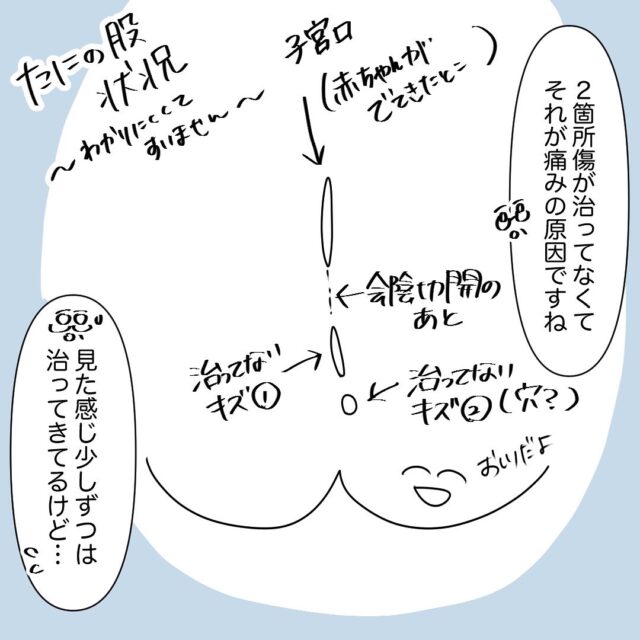 たにの股
状況
〜わかりにくくて
すいません〜
子宮口
(赤ちゃんが
でてきたとこ)
2箇所傷が治ってなくて
それが痛みの原因ですね
会陰切開の
あと
治ってない
キズ①
治ってない
キズ②(穴?)
おしりだよ
見た感じ少しずつは
治ってきてるけど…